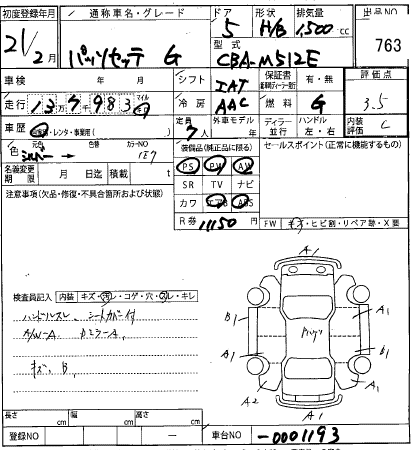 初度登録年月 通称車名・グレード ドア 形状 排気量 出品NO
21/2月 パッソセッテ G 5 H/B 1,500cc 763
型式 CBA-M512E
車検 年 月 シフト IAT 保証書 有・無 評価点
走行 マイル 冷房 AAC 燃料 G 3.5
車歴 自家用・レンタ・事業用( ) 定員 7人 外車モデル 年 ディーラー 並行 ハンドル 左・右 内装評価 C
色 元色 シルバー 色替 カラーNO 装備品(純正品に限る) セールスポイント(正常に機能するもの)
名義変更期限 月 日迄 積載 t PS PW AW
SR TV ナビ
注意事項(欠品・修復・不具合箇所および状態) カワ エアB ABS
R券 11150円 FW キズ・ヒビ割・リペア跡・X要
A1
検査員記入 内装 キズ・汚レ・コゲ・穴・スレ・キレ
ハンドルスレ シートカバー付
A/W-A
キズ B
B1 A1
A1 B1
A2 A1
A1
長さ cm 幅 cm 高さ cm
登録NO 車台NO -0001193